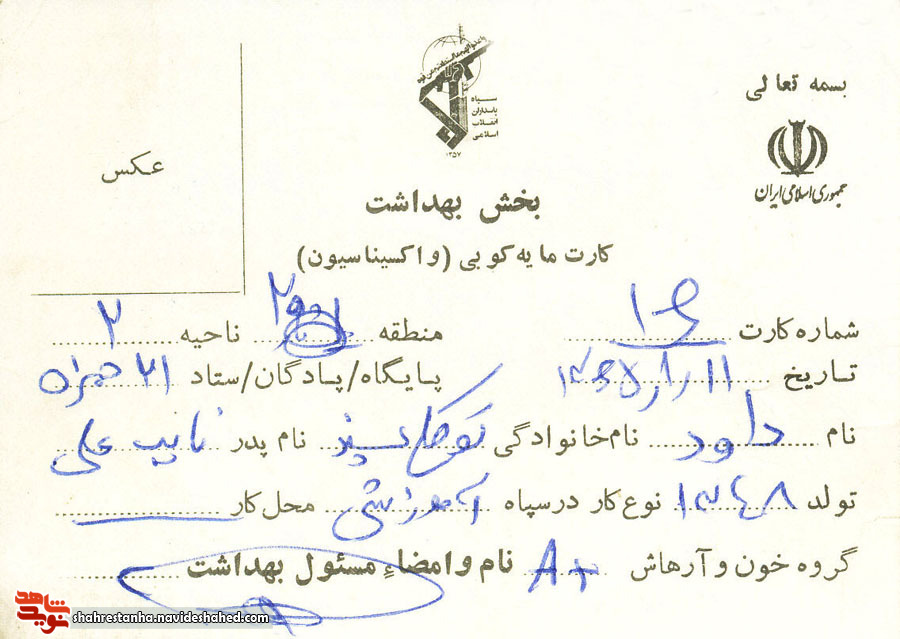 بسمه تعالی
جمهوری اسلامی ایران
سپاه
پاسداران
انقلاب
اسلامی
۱۳۵۷
عکس
بخش بهداشت
کارت مایه کوبی (واکسیناسیون)
شماره کارت منطقه ناحیه ۲
تاریخ ۱۳۶۵/۸/۱۱ پایگاه/پادگان/ستاد ۲۱ حمزه
نام داود نام خانوادگی نام پدر نایب علی
تولد ۱۳۴۸ نوع کار در سپاه آموزشی محل کار
گروه خون و آرهاش A+ نام و امضاءِ مسئول بهداشت
نوید شاهد
shahrestanha.navideshahed.com